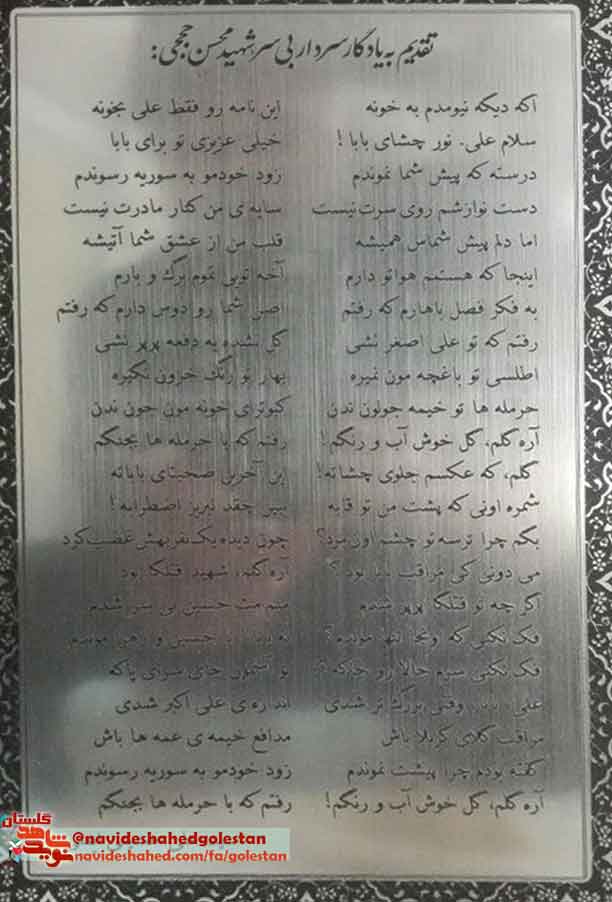 تقدیم به یادگار سردار بی سر شهید محسن حججی:
اگه دیگه نیومدم به خونه این نامه رو فقط علی بخونه
سلام علی. نور چشای بابا! خیلی عزیزی تو برای بابا
درسته که پیش شما نموندم زود خودمو به سوریه رسوندم
دست نوازشم روی سرت نیست سایه ی من کنار مادرت نیست
اما دلم پیش شماس همیشه قلب من از عشق شما آتیشه
اینجا که هستم هواتو دارم آخه تویی تموم برگ و بارم
به فکر فصل باهارم که رفتم اصن شما رو دوس دارم که رفتم
رفتم که تو علی اصغر نشی گل نشده یه دفعه پرپر نشی
اطلسی تو باغچه مون نمیره بهار تو رنگ خزون نگیره
حرمله ها تو خیمه جولون ندن کبوترای خونه مون جون ندن
آره گلم، گل خوش آب و رنگم! رفتم که با حرمله ها بجنگم
گلم، که عکسم جلوی چشاته! این آخرین صحبتای باباته
شمره اونی که پشت من تو قابه ببین چقد لبریز اضطرابه!
بگم چرا ترسه تو چشم اون مرد؟ چون دیده یک نفر بهش غضب کرد
می دونی کی مراقب بابا بود؟ آره گلم، شهید قتلگا بود
اگر چه تو قتلگا پرپر شدم منم مث حسین بی سر شدم
فک نکنی که اونجا تنها موندم؟
فک نکنی سرم حالا رو خاکه؟ تو آسمون جای سرای پاکه
علی! بابا! وقتی بزرگ تر شدی اندازه ی علی اکبر شدی
مراقب گلای کربلا باش مدافع خیمه ی عمه ها باش
گفته بودم چرا پیشت نموندم زود خودمو به سوریه رسوندم
آره گلم، گل خوش آب و رنگم! رفتم که با حرمله ها بجنگم
نوید شاهد گلستان
@navideshahedgolestan
navideshahed.com/fa/golestan